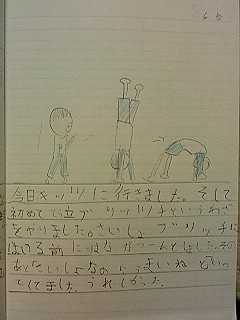 65
今日キッツに行きました。そして
初めてい立ブリッツチというわざ
をやりました。さいしょブリッツチに
いける前にはながつーんとしました。その
あとないしょなのにうまいねといっ
てくてました。うれしかった。